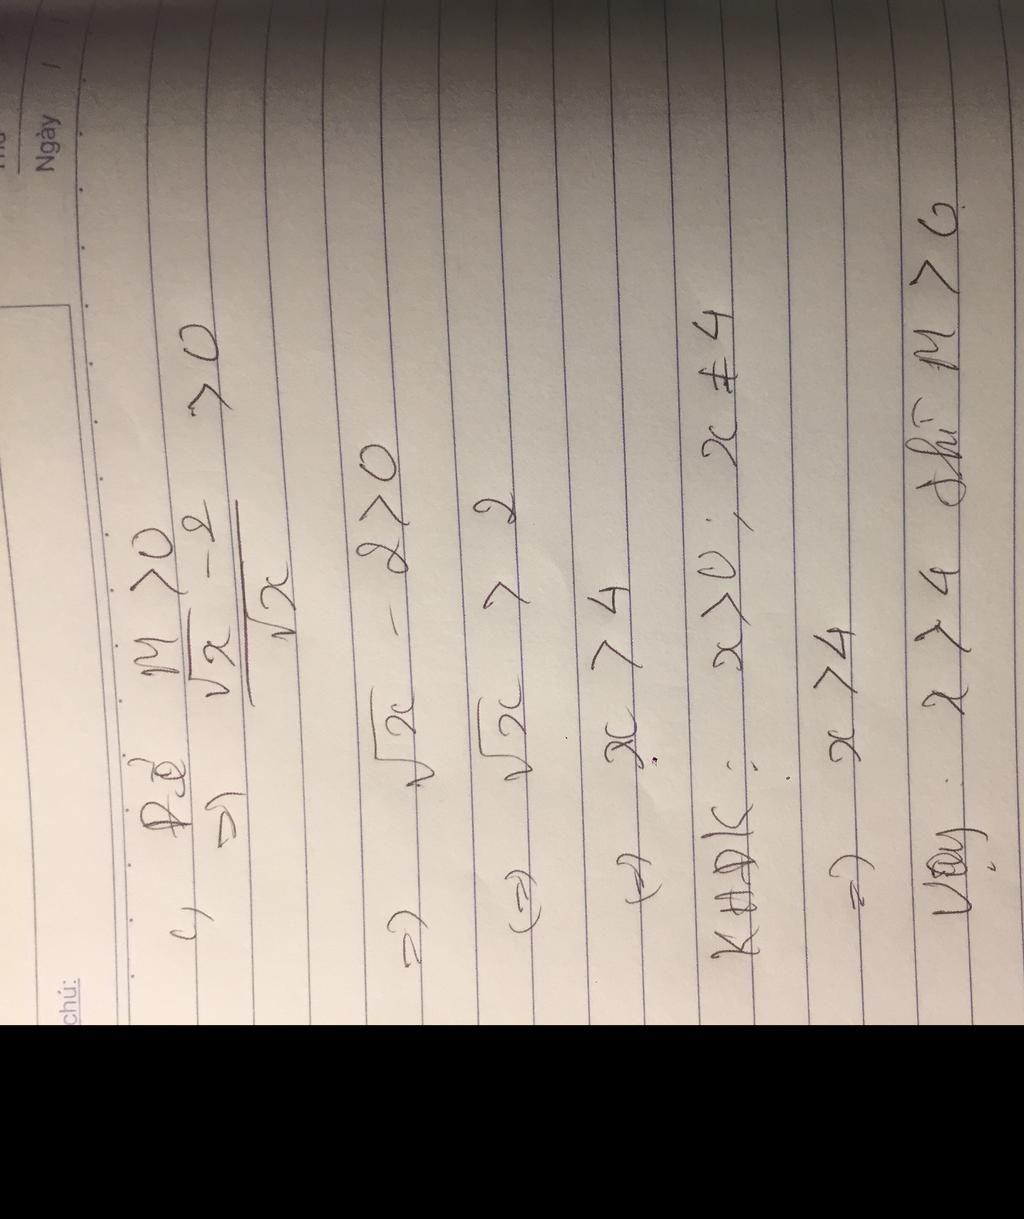 Ngày /
chú:
c, Để M > 0
=> √x - 2 / √x > 0
=> √x - 2 > 0
(=) √x > 2
(=) x > 4
KHĐK: x > 0; x ≠ 4
=> x > 4
Vậy x > 4 thì M > 0